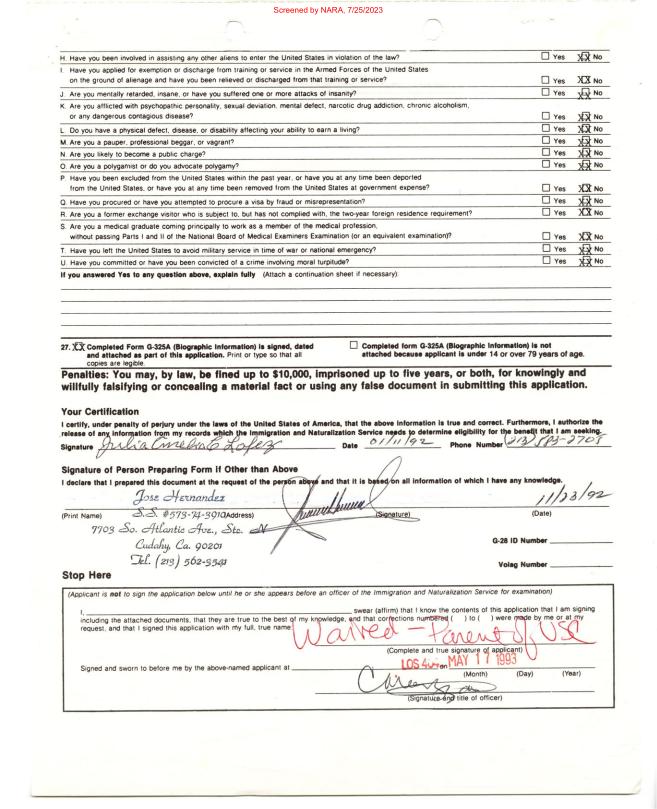 Screened by NARA, 7/25/2023
H. Have you been involved in assisting any other aliens to enter the United States in violation of the law? ☐ Yes XX No
I. Have you applied for exemption or discharge from training or service in the Armed Forces of the United States
on the ground of alienage and have you been relieved or discharged from that training or service? ☐ Yes XX No
J. Are you mentally retarded, insane, or have you suffered one or more attacks of insanity? ☐ Yes XX No
K. Are you afflicted with psychopathic personality, sexual deviation, mental defect, narcotic drug addiction, chronic alcoholism,
or any dangerous contagious disease? ☐ Yes XX No
L. Do you have a physical defect, disease, or disability affecting your ability to earn a living? ☐ Yes XX No
M. Are you a pauper, professional beggar, or vagrant? ☐ Yes XX No
N. Are you likely to become a public charge? ☐ Yes XX No
O. Are you a polygamist or do you advocate polygamy? ☐ Yes XX No
P. Have you been excluded from the United States within the past year, or have you at any time been deported
from the United States, or have you at any time been removed from the United States at government expense? ☐ Yes XX No
Q. Have you procured or have you attempted to procure a visa by fraud or misrepresentation? ☐ Yes XX No
R. Are you a former exchange visitor who is subject to, but has not complied with, the two-year foreign residence requirement? ☐ Yes XX No
S. Are you a medical graduate coming principally to work as a member of the medical profession,
without passing Parts I and II of the National Board of Medical Examiners Examination (or an equivalent examination)? ☐ Yes XX No
T. Have you left the United States to avoid military service in time of war or national emergency? ☐ Yes XX No
U. Have you committed or have you been convicted of a crime involving moral turpitude? ☐ Yes XX No
If you answered Yes to any question above, explain fully (Attach a continuation sheet if necessary):
27. XX Completed Form G-325A (Biographic Information) is signed, dated ☐ Completed form G-325A (Biographic Information) is not
and attached as part of this application. Print or type so that all attached because applicant is under 14 or over 79 years of age.
copies are legible.
Penalties: You may, by law, be fined up to $10,000, imprisoned up to five years, or both, for knowingly and
willfully falsifying or concealing a material fact or using any false document in submitting this application.
Your Certification
I certify, under penalty of perjury under the laws of the United States of America, that the above information is true and correct. Furthermore, I authorize the
release of any information from my records which the Immigration and Naturalization Service needs to determine eligibility for the benefit that I am seeking.
Signature Julia Lopez Date 01/11/92 Phone Number
Signature of Person Preparing Form if Other than Above
I declare that I prepared this document at the request of the person above and that it is based on all information of which I have any knowledge.
Jose Hernandez 11/23/92
(Print Name) S.S. #573-74-3910 (Address) (Signature) (Date)
7703 So. Atlantic Ave., Ste. N
Cudahy, Ca. 90201 G-28 ID Number
Tel. (213) 562-3341
Volag Number
Stop Here
(Applicant is not to sign the application below until he or she appears before an officer of the Immigration and Naturalization Service for examination)
I, swear (affirm) that I know the contents of this application that I am signing
including the attached documents, that they are true to the best of my knowledge, and that corrections numbered ( ) to ( ) were made by me or at my
request, and that I signed this application with my full, true name:
Waived - Parent of USC
(Complete and true signature of applicant)
Signed and sworn to before me by the above-named applicant at LOS on MAY 17 1993
(Month) (Day) (Year)
(Signature and title of officer)